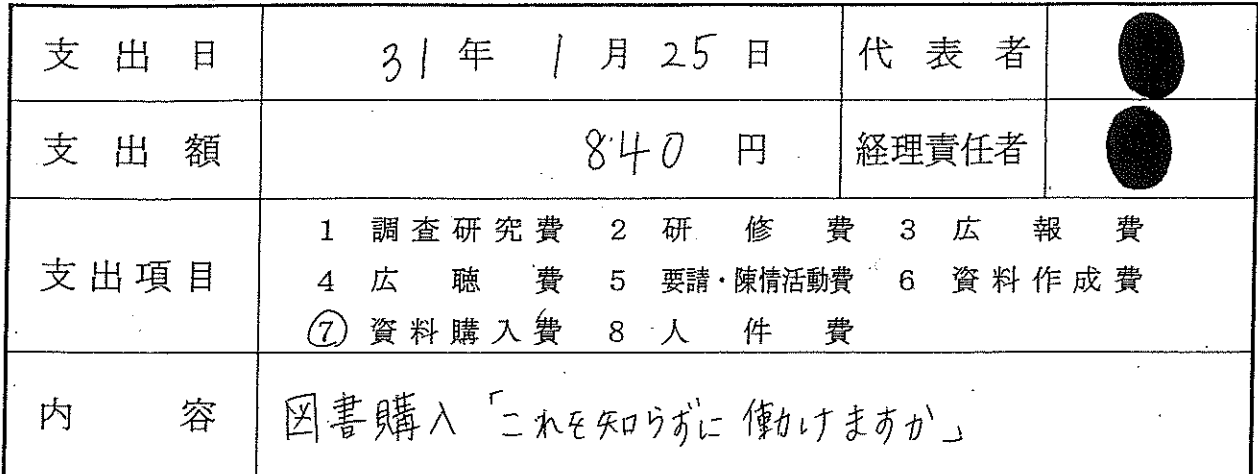 支出日 31年 1月25日 代表者
支出額 840円 経理責任者
1 調査研究費 2 研修費 3 広報費
支出項目 4 広聴費 5 要請・陳情活動費 6 資料作成費
⑦ 資料購入費 8 人件費
内容 図書購入「これを知らずに働けますか」